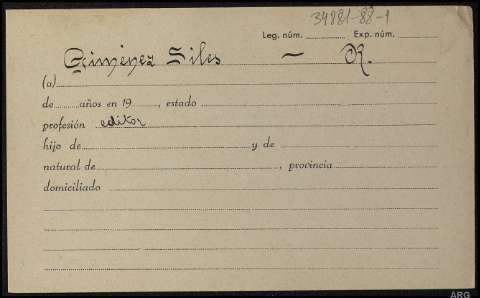 34881-88-1
Leg. núm. Exp. núm.
Giménez Siles — R.
(a)
de años en 19 , estado
profesión editor
hijo de y de
natural de , provincia
domiciliado
ARG